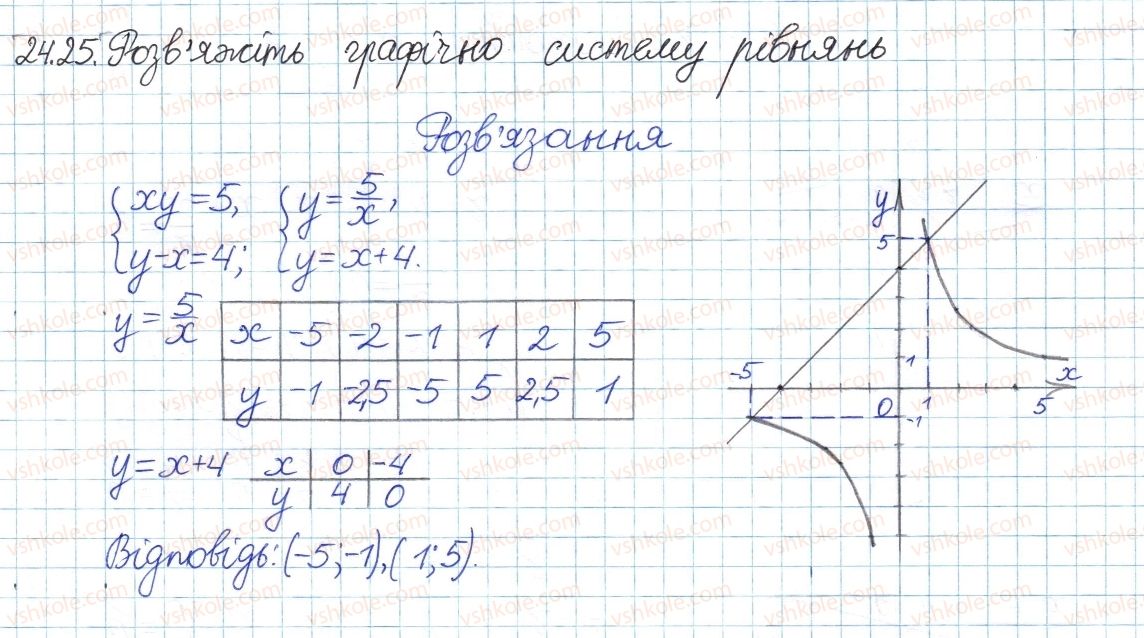 24.25. Розв'яжіть графічно систему рівнянь
Розв'язання
{xy=5, {y=5/x,
{y-x=4; {y=x+4.
y=5/x
x -5 -2 -1 1 2 5
y -1 -2,5 -5 5 2,5 1
y=x+4
x 0 -4
y 4 0
Відповідь: (-5;-1), (1;5).
y
5
-5
1
x
0
1
5
-1
vshkole.com